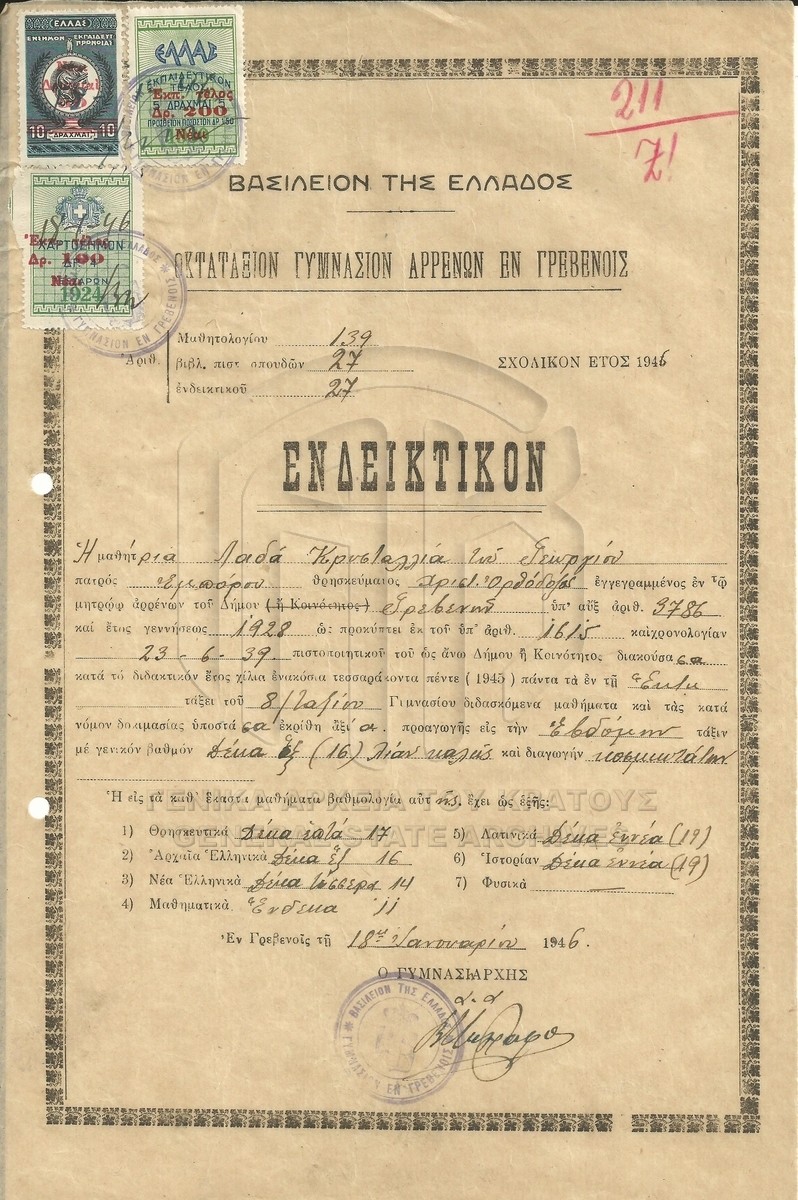 ΕΛΛΑΣ
ΕΝΣΗΜΟΝ ΕΚΠΑΙΔΕΥΤ. ΠΡΟΝΟΙΑΣ
10 ΔΡΑΧΜΑΙ 10
ΕΛΛΑΣ
ΕΚΠΑΙΔΕΥΤΙΚΟΝ
ΤΕΛΟΣ
5 ΔΡΑΧΜΑΙ 5
Ἐκπ. τέλος
Δρ. 200
Νέαι
211
7!
ΒΑΣΙΛΕΙΟΝ ΤΗΣ ΕΛΛΑΔΟΣ
18-1-46
ΧΑΡΤΟΣΗΜΟΝ
Ἐκπ. τέλος
Δρ. 100
Νέαι
1924
ΟΚΤΑΤΑΞΙΟΝ ΓΥΜΝΑΣΙΟΝ ΑΡΡΕΝΩΝ ΕΝ ΓΡΕΒΕΝΟΙΣ
Μαθητολογίου 139
Ἀριθ. βιβλ. πιστ σπουδῶν 27 ΣΧΟΛΙΚΟΝ ΕΤΟΣ 1945
ἐνδεικτικοῦ 27
ΕΝΔΕΙΚΤΙΚΟΝ
Ἡ μαθήτρια Λαδᾶ Κρυσταλλία τοῦ Γεωργίου
πατρός Ἐμπόρου θρησκεύματος Χριστ. Ὀρθόδοξος ἐγγεγραμμένος ἐν τῷ
μητρῴῳ ἀρρένων τοῦ Δήμου (ἢ Κοινότητος) Γρεβενῶν ὑπ' αὔξ ἀριθ. 3786
καὶ ἔτος γεννήσεως 1928 ὡς προκύπτει ἐκ τοῦ ὑπ' ἀριθ. 1615 καὶ χρονολογίαν
23-6-39 πιστοποιητικοῦ τοῦ ὡς ἄνω Δήμου ἢ Κοινότητος διακούσασα
κατὰ τὸ διδακτικὸν ἔτος χίλια ἐνακόσια τεσσαράκοντα πέντε (1945) πάντα τὰ ἐν τῇ Ἕκτῃ
τάξει τοῦ 8/ταξίου Γυμνασίου διδασκόμενα μαθήματα καὶ τὰς κατὰ
νόμον δοκιμασίας ὑποστᾶσα ἐκρίθη ἀξία προαγωγῆς εἰς τὴν Ἑβδόμην τάξιν
μὲ γενικὸν βαθμὸν Δέκα ἕξ (16) λίαν καλῶς καὶ διαγωγὴν κοσμιωτάτην
Ἡ εἰς τὰ καθ' ἕκαστα μαθήματα βαθμολογία αὐτῆς ἔχει ὡς ἑξῆς:
ΓΕΝΙΚΑ ΑΡΧΕΙΑ ΤΟΥ ΚΡΑΤΟΥΣ
GENERAL STATE ARCHIVES
1) Θρησκευτικά Δέκα ἑπτά 17
2) Ἀρχαῖα Ἑλληνικά Δέκα ἕξ 16
3) Νέα Ἑλληνικά Δέκα τέσσερα 14
4) Μαθηματικά Ἕνδεκα 11
5) Λατινικά Δέκα ἐννέα (19)
6) Ἱστορίαν Δέκα ἐννέα (19)
7) Φυσικά —
Ἐν Γρεβενοῖς τῇ 18ῃ Ἰανουαρίου 1946.
Ο ΓΥΜΝΑΣΙΑΡΧΗΣ
α.α
ΒΑΣΙΛΕΙΟΝ ΤΗΣ ΕΛΛΑΔΟΣ
ΕΝ ΓΡΕΒΕΝΟΙΣ